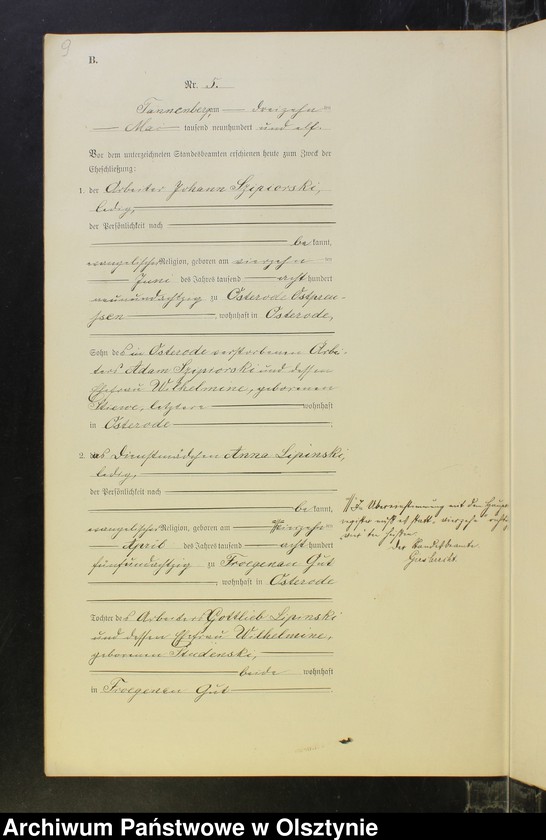 9
B.
Nr. 5.
Tannenberg, am dreizehn ten
Mai tausend neunhundert und elf.
Vor dem unterzeichneten Standesbeamten erschienen heute zum Zweck der
Eheschließung:
1. der Arbeiter Johann Szipiorski,
ledig,
der Persönlichkeit nach
be kannt,
evangelischer Religion, geboren am vierzehn ten
Juni des Jahres tausend acht hundert
neunundachtzig zu Osterode Ostpreu-
ßen, wohnhaft in Osterode,
Sohn des in Osterode verstorbenen Arbei-
ters Adam Szipiorski und dessen
Ehefrau Wilhelmine, geborenen
letztere wohnhaft
in Osterode.
2. das Dienstmädchen Anna Lipinski,
ledig,
der Persönlichkeit nach
be kannt,
evangelischer Religion, geboren am ten
April des Jahres tausend acht hundert
fünfundachtzig zu Froegenau Gut
, wohnhaft in Osterode
Tochter des Arbeiters Gottlieb Lipinski
und dessen Ehefrau Wilhelmine,
geborenen Studenski,
beide wohnhaft
in Froegenau Gut
In Übereinstimmung mit dem Haupt-
register statt vierzehn
Der Standesbeamte
Archiwum Państwowe w Olsztynie